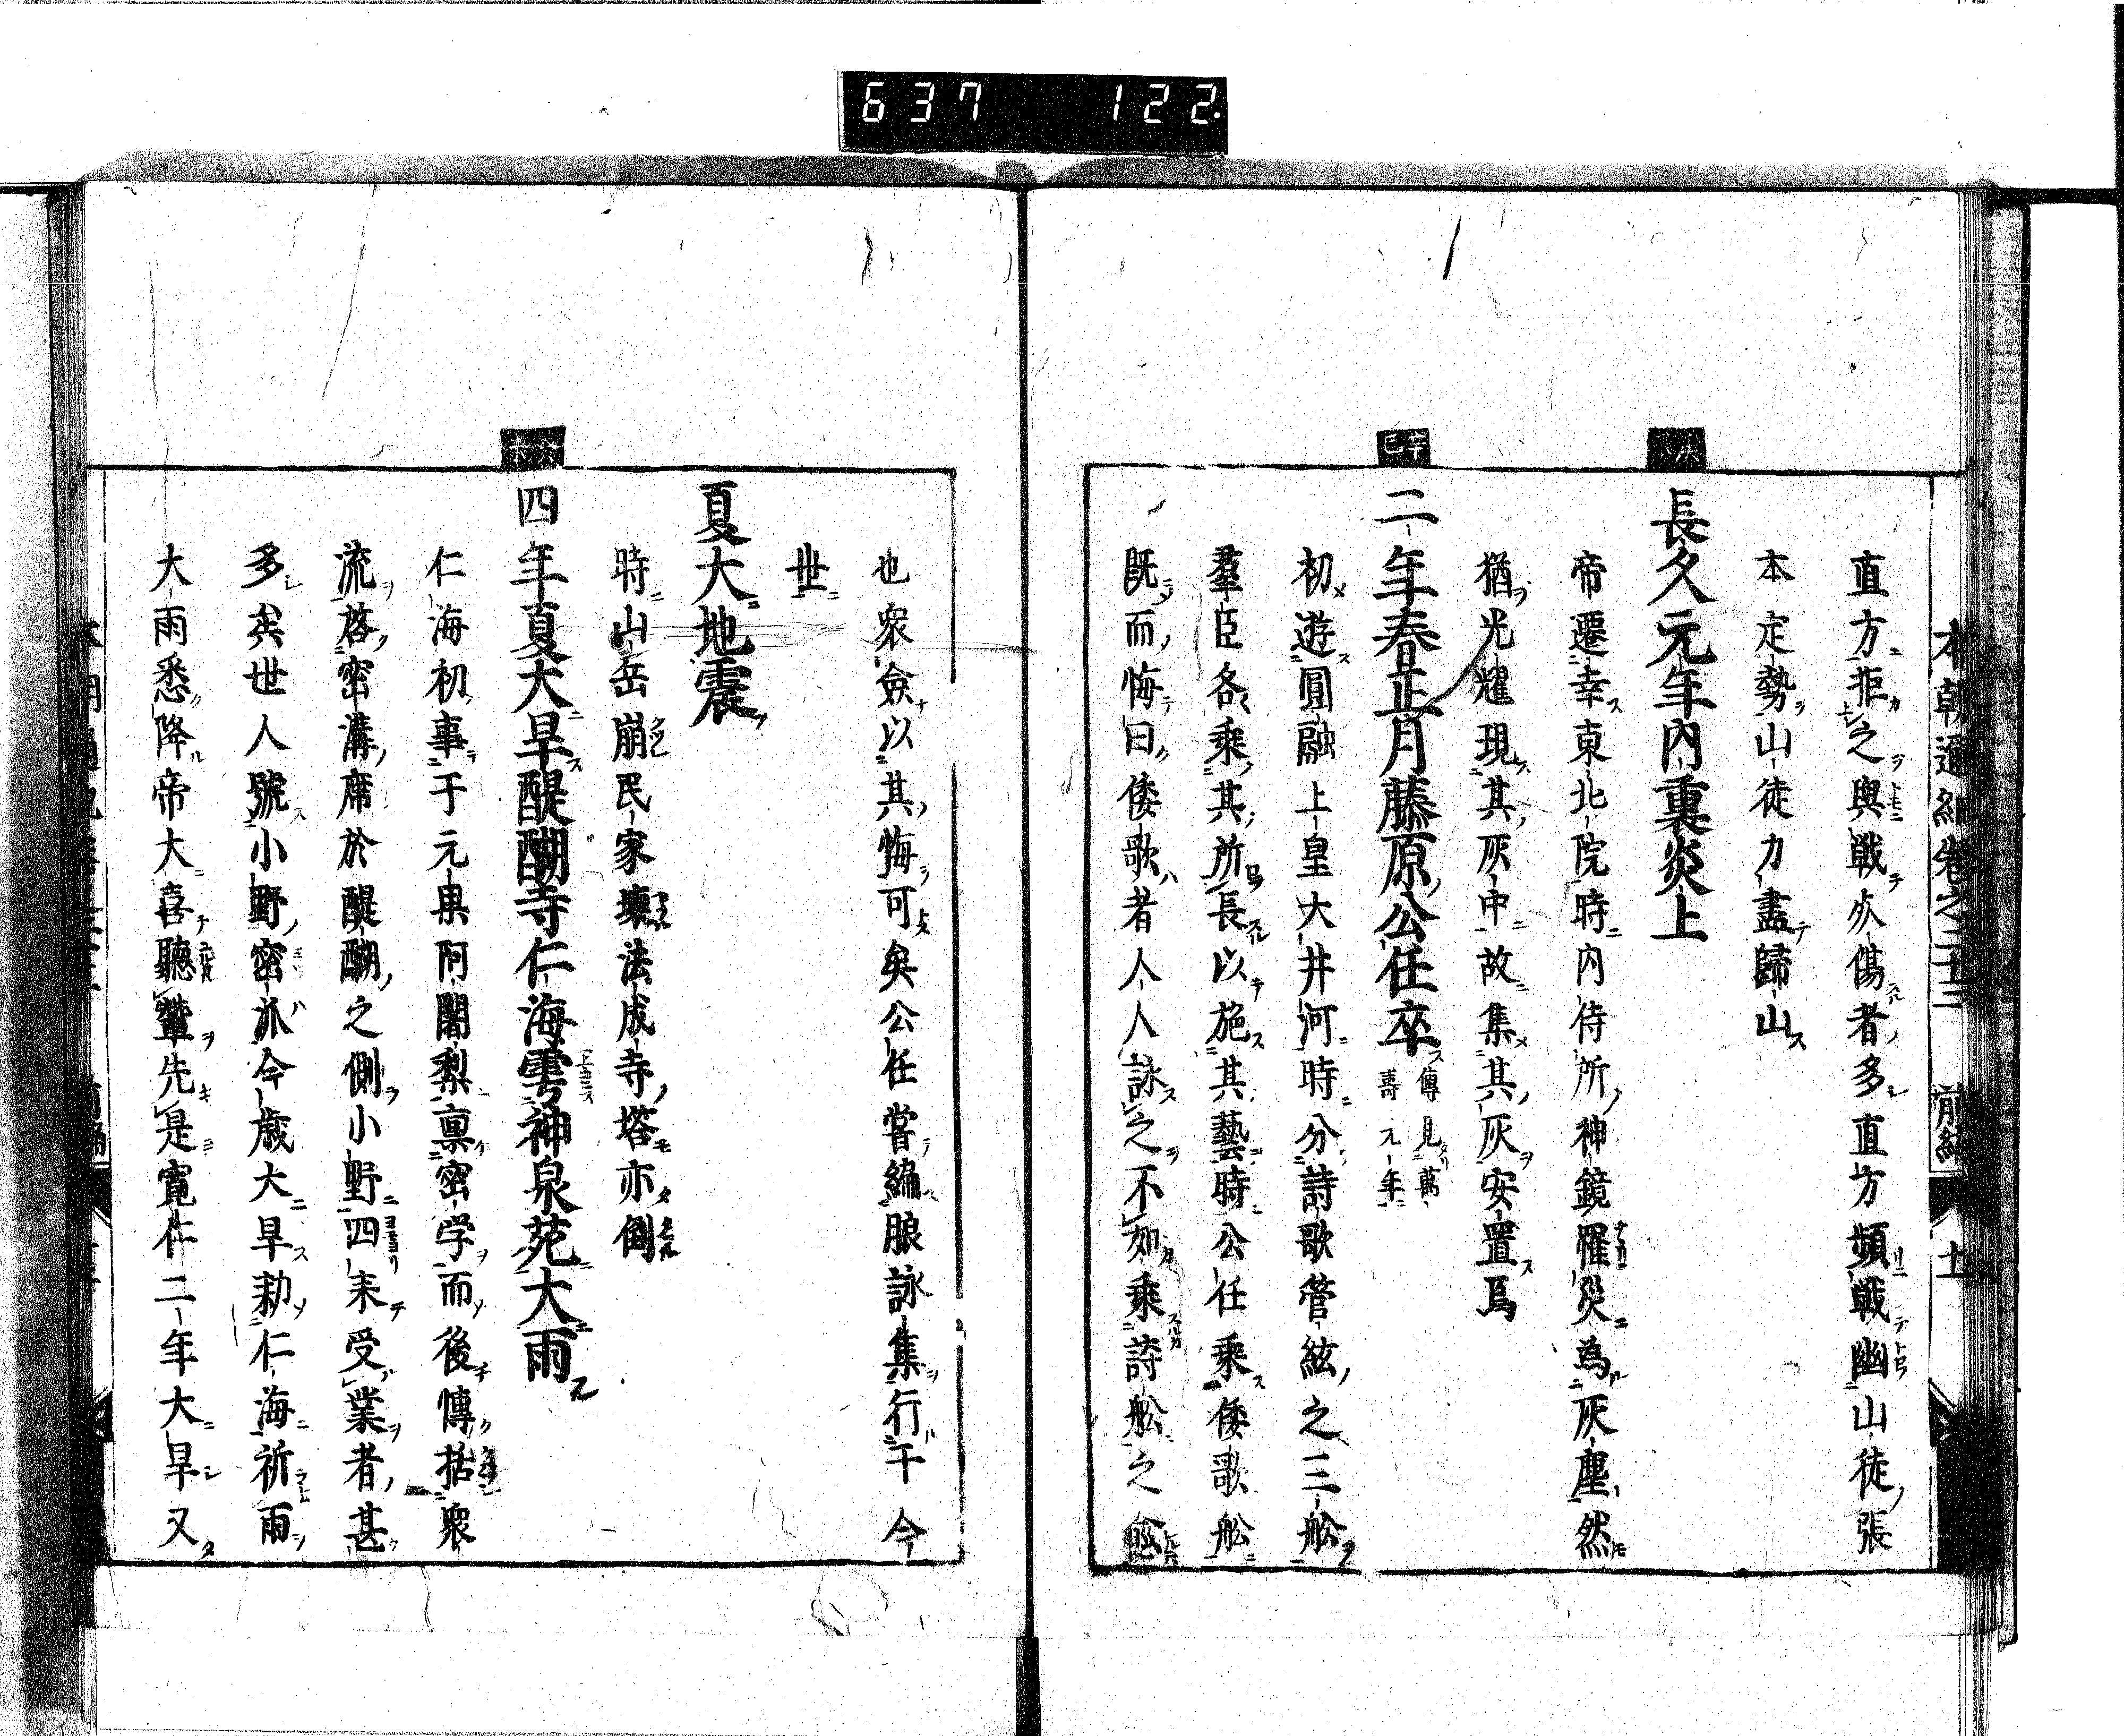 637 122
本朝通紀卷之二十三 前編 十
直方拒之與戰疵傷者多直方頻戰幽山徒張
本定勢山徒力盡歸山
長久元年內裏炎上
帝遷幸東北院時內侍所神鏡罹災為灰塵然
猶光耀現其灰中故集其灰安置焉
辛巳
二年春正月藤原公任卒
傳見萬
壽元年
初遊圓融上皇大井河時分詩歌管絃之三舩
羣臣各乘其所長以施其藝時公任乘倭歌舩
既而悔曰倭歌者人人詠之不如乘詩舩之愈
也衆僉以其悔可矣公任嘗編朗詠集行于今
世
夏大地震
時山岳崩民家壞法成寺塔亦倒
四年夏大旱醍醐寺仁海雩神泉苑大雨
仁海初事于元果阿闍梨禀密学而後慱括衆
流啓密溝席於醍醐之側小野四来受業者甚
多矣世人號小野密派今歲大旱勅仁海祈雨
大雨悉降帝大喜聽輦先是寛仁二年大旱又